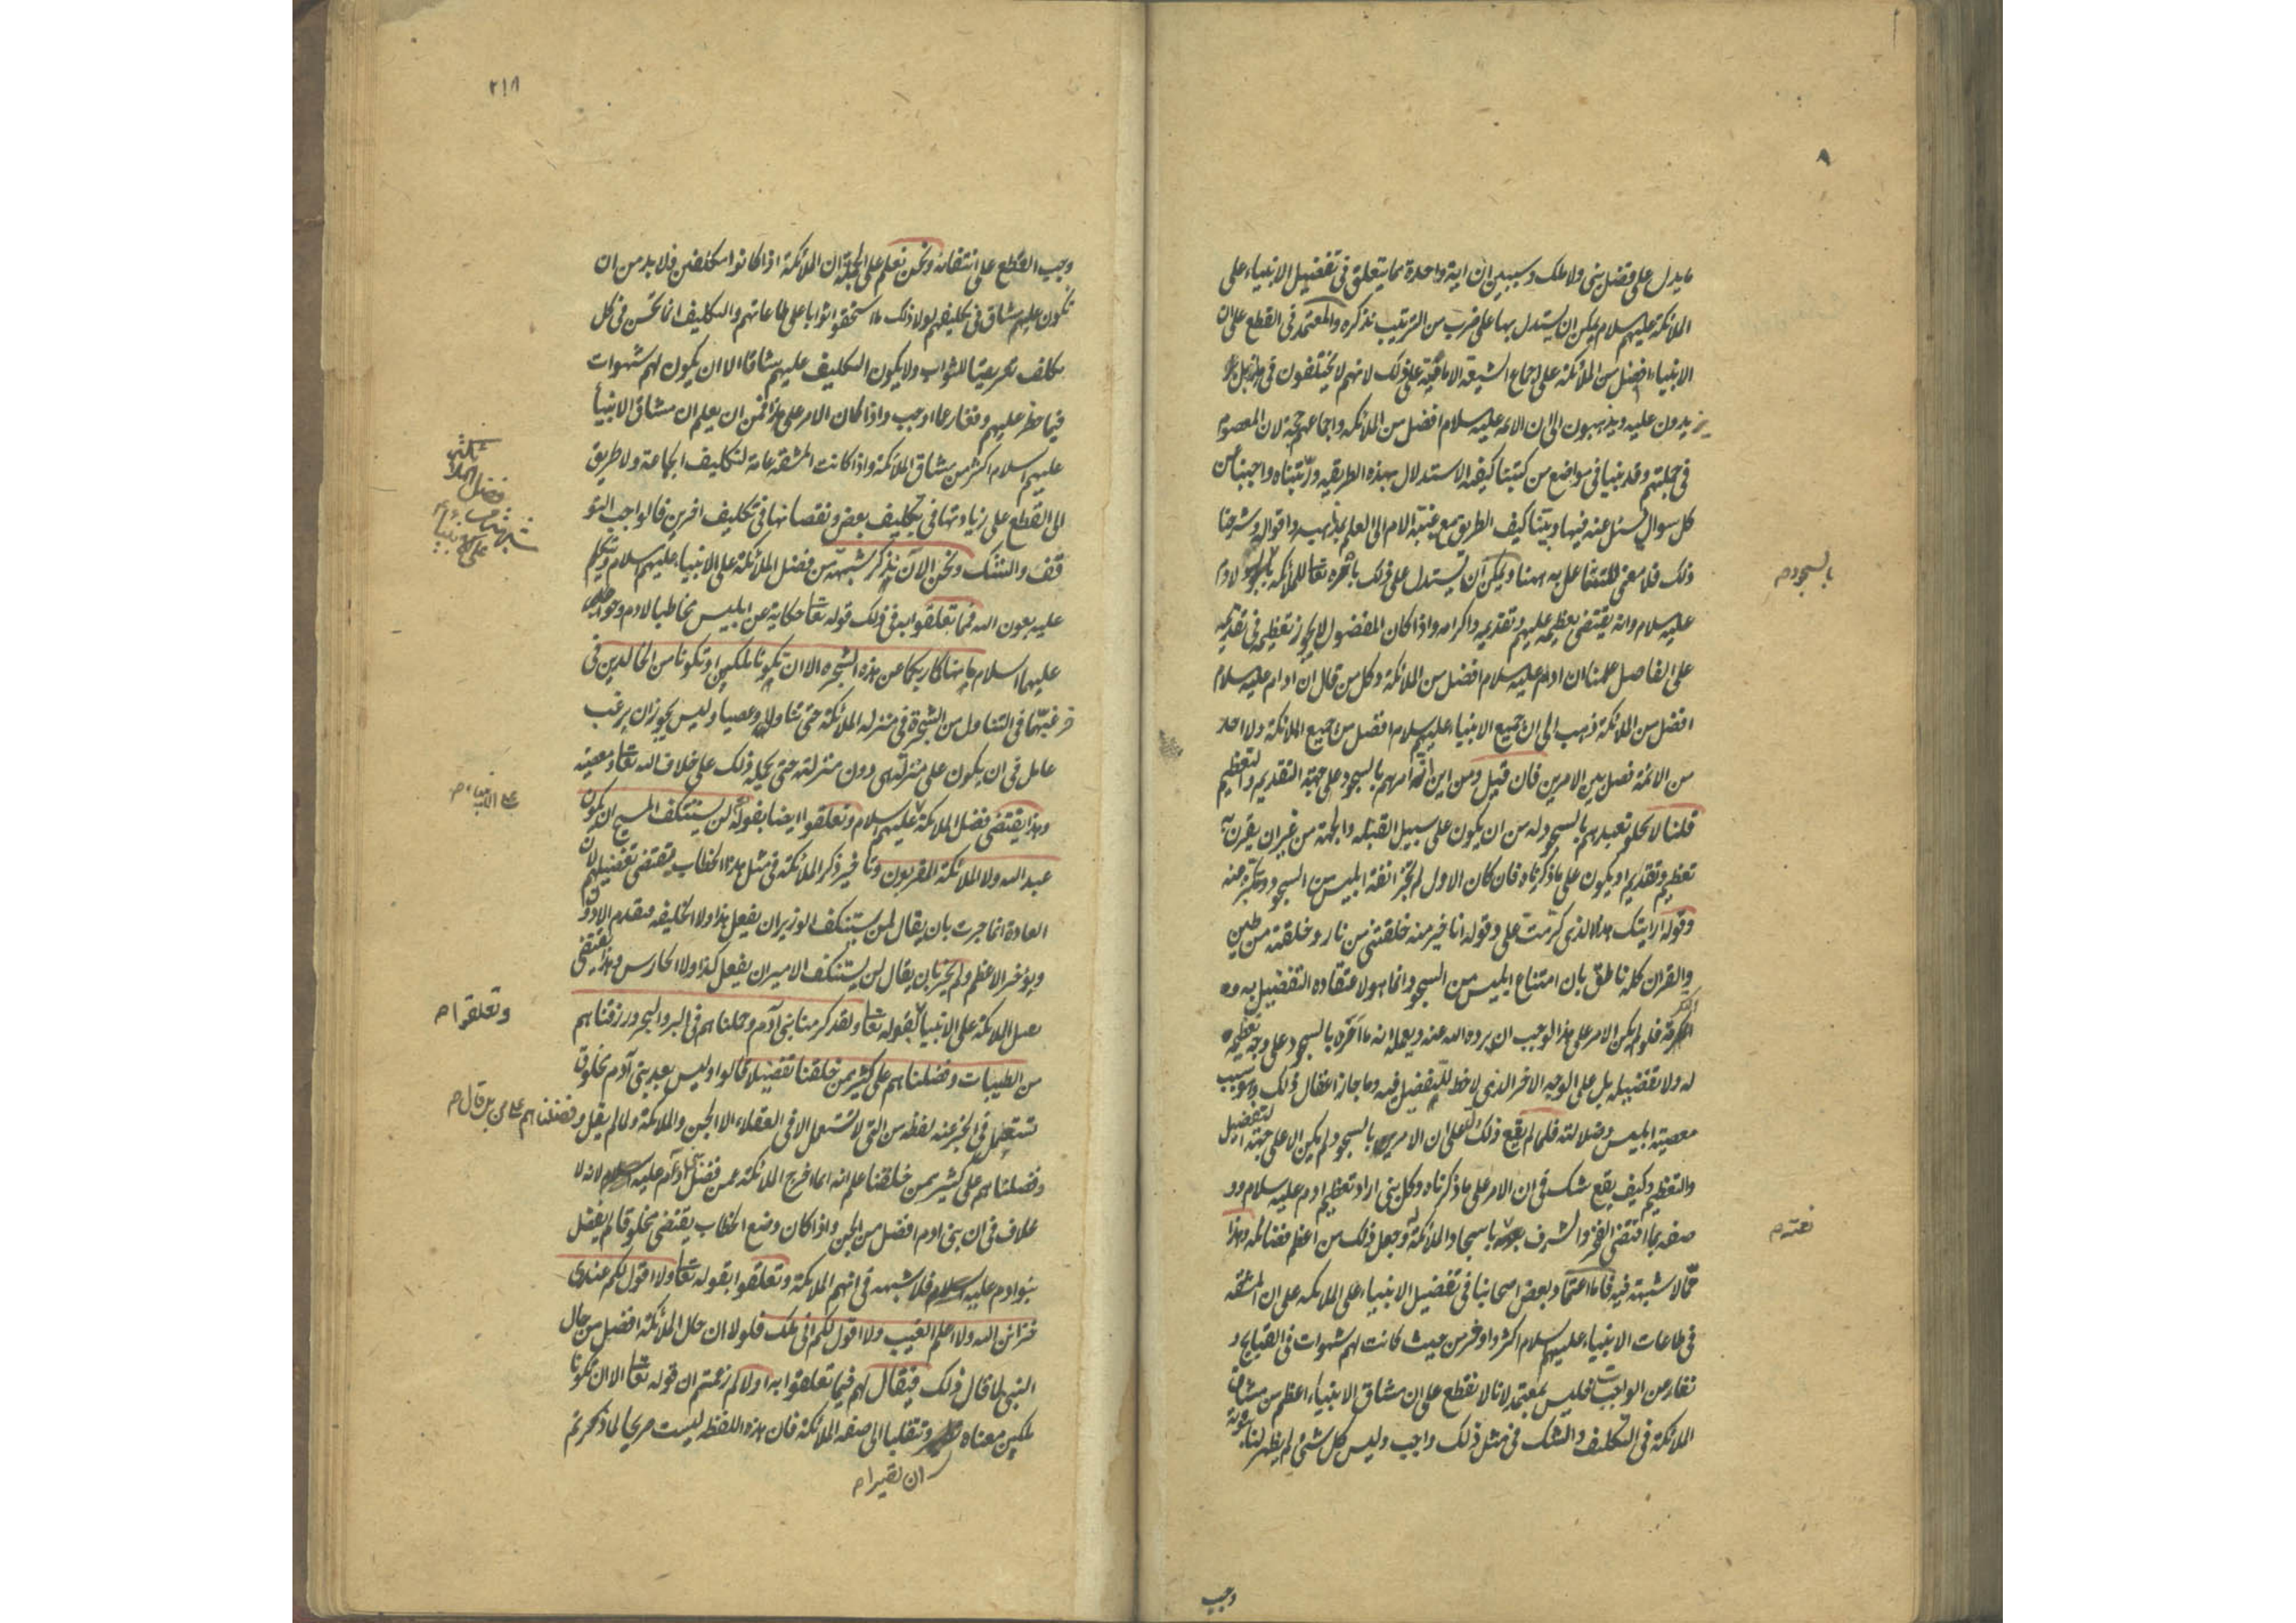 ما يدل على فضل نبى ولا ملك وسيبين ان اية واحدة مما يتعلق فى تفضيل الانبياء على
الملائكة عليهم سلام يمكن ان يستدل بها على ضرب من الترتيب نذكره والمعتمد فى القطع على ان
الانبياء افضل من الملائكة على اجماع الشيعة الامامية على ذلك لانهم لا يختلفون فى هذا بل
يزيدون عليه ويذهبون الى ان الائمه عليه سلام افضل من الملائكه واجماعهم حجة لان المعصوم
فى جملتهم وقد بينا فى مواضع من كتبنا كيفية الاستدلال بهذه الطريقيه ورتبناه واجبنا عن
كل سوال يسئل عنه فيها وبينا كيف الطريق مع غيبة الامام الى العلم بمذاهبه واقواله وشرحنا
ذلك فلا معنى للتشاغل به ههنا ويمكن ان يستدل على ذلك بامره تعا للملائكه لادم
بالسجود م
عليه سلام وانه يقتضى تعظيمه عليهم وتقديمه واكرامه واذا كان المفضول لا يجوز تعظيمه وتقديمه
على الفاضل علمنا ان ادم عليه سلام افضل من الملائكة وكل من قال ان ادم عليه سلام
افضل من الملائكة ذهب الى ان جميع الانبياء عليهم سلام افضل من جميع الملائكة ولا احد
من الائمة فصل بين الامرين فان قيل ومن اين انه امرهم بالسجود على جهة التقديم والتعظيم
قلنا لا يخلو تعبدهم بالسجود له من ان يكون على سبيل القبله والجهة من غير ان يقرن به
تعظيم وتقديم او يكون على ما ذكرناه فان كان الاول لم يجز انفة ابليس من السجود وتكبره عنه
وقوله ارايتك هذا الذى كرمت على وقوله انا خير منه خلقتنى من نار وخلقته من طين
والقران كله ناطق بان امتناع ابليس من السجود انما هو لاعتقاده التفضيل به و
التكرمة فلو لم يكن الامر على هذا لوجب ان يرده الله عنه ويعلمه انه ما امره بالسجود على وجه تعظيمه
له ولا تفضيله بل على الوجه الاخر الذى لا حظ للتفضيل فيه وما جاز اغفال ذلك وهو سبب
معصية ابليس وضلالته فلما لم يقع ذلك دل على ان الامر بالسجود لم يكن الا على جهة التفضيل
والتعظيم وكيف يقع شك فى ان الامر على ما ذكرناه وكل نبى اراد تعظيم ادم عليه سلام وو
صفه بما اقتضى الفخر والشرف باسجاد الملائكة له وجعل ذلك من اعظم فضائله وهذا
نعته م
مما لا شبهة فيه فاما اعتماد بعض اصحابنا فى تفضيل الانبياء على الملائكه على ان المشقه
فى طاعات الانبياء عليهم سلام اكثر واوفر من حيث كانت لهم شهوات فى القبايح و
نفار عن الواجبات فليس بمعتمد لانا لا نقطع على ان مشاق الانبياء اعظم من مشاق
الملائكة فى التكليف والشك فى مثل ذلك واجب وليس كل شىء لم يظهر لنا ثبوته
وجب
٢١٨
وجب القطع على انتفائه ونحن نعلم على الجملة ان الملائكة اذا كانوا مكلفين فلا بد من ان
تكون عليهم مشاق فى تكليفهم لولا ذلك ما استحقوا ثوابا على طاعاتهم والتكليف انما يحسن فى كل
مكلف تعريضا للثواب ولا يكون التكليف عليهم شاقا الا ان يكون لهم شهوات
فيما حظر عليهم ونفار عما اوجب واذا كان الامر على هذا فمن اين يعلم ان مشاق الانبيأ
عليهم السلام اكثر من مشاق الملائكة واذا كانت المشقه عامة لتكليف الجماعة ولا طريق
الى القطع على زيادتها فى تكليف بعض ونقصانها فى تكليف اخرين فالواجب التو
قف والشك ونحن الآن نذكر شبهة من فضل الملائكة على الانبياء عليهم سلام ونتكلم
عليه بعون الله فمما تعلقوا به فى ذلك قوله تعا حكاية عن ابليس مخاطبا لادم وحوا
عليهما السلام ما نهاكما ربكما عن هذه الشجره الا ان تكونا ملكين او تكونا من الخالدين فى
فرغبهما فى التناول من الشجرة فى منزله الملائكة حتى تناولا وعصيا وليس يجوز ان يرغب
عاقل فى ان يكون على منزلة هى دون منزلته حتى يحمله ذلك على خلاف الله تعا ومعصيته
وهذا يقتضى فضل الملائكة عليهم السلام وتعلقوا ايضا بقوله لن يستنكف المسيح ان يكون
على الانبياء م
عبد الله ولا الملائكة المقربون وتاخير ذكر الملائكة فى مثل هذا الخطاب يقتضى تفضيلهم لان
العادة انما جرت بان يقال لن يستنكف الوزير ان يفعل هذا ولا الخليفه فيقدم الادون
ويؤخر الاعظم ولم يجز بان يقال لن يستنكف الامير ان يفعل كذا ولا الحارس وهذا يقتضى
فضل الملائكة على الانبياء بقوله تعا ولقد كرمنا بنى آدم وحملناهم فى البر والبحر ورزقناهم
وتعلقوا م
من الطيبات وفضلناهم على كثير ممن خلقنا تفضيلا قالوا وليس بعد بنى آدم مخلوق
يستعمل فى الخبر عنه لفظه من التى لا تستعمل الا فى العقلاء الا الجن والملائكة ولما لم يقل وفضلناهم على من بل قال م
وفضلناهم على كثير ممن خلقنا علم انه انما اخرج الملائكة عمن فضل بنى آدم عليه لانه لا
خلاف فى ان بنى ادم افضل من الجن واذا كان وضع الخطاب يقتضى مخلوقا لم يفضل
بنو ادم عليه فلا شبهه فى انهم الملائكة وتعلقوا بقوله تعا ولا اقول لكم عندى
خزائن الله ولا اعلم الغيب ولا اقول لكم انى ملك فلولا ان حال الملائكة افضل من حال
النبى لما قال ذلك فيقال لهم فيما تعلقوا به اولا لم زعمتم ان قوله تعا الا ان تكونا
ملكين معناه وتنقلبا الى صفه الملائكة فان هذه اللفظه ليست صريحا لما ذكرتم
ان تصيرا م